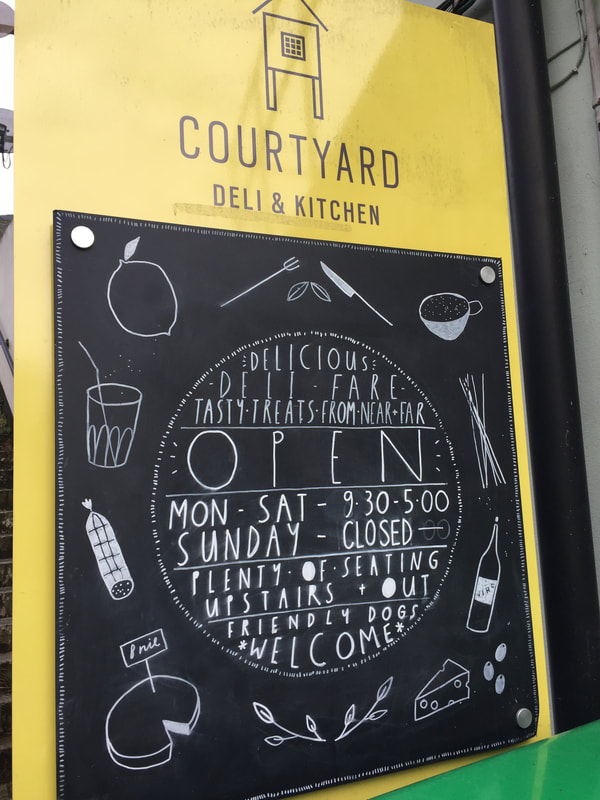 COURTYARD
DELI & KITCHEN
DELICIOUS
- DELI - FARE -
TASTY·TREATS·FROM·NEAR+FAR
OPEN
MON - SAT - 9·30-5·00
SUNDAY - CLOSED
PLENTY · OF · SEATING
UPSTAIRS + OUT
FRIENDLY DOGS
*WELCOME*
Brie